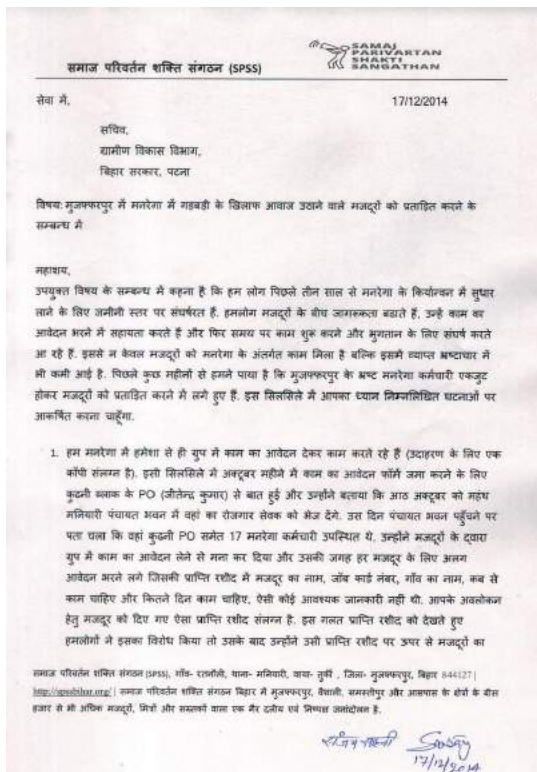 SAMAJ
PARIVARTAN
SHAKTI
SANGATHAN
समाज परिवर्तन शक्ति संगठन (SPSS)
सेवा में,
17/12/2014
सचिव,
ग्रामीण विकास विभाग,
बिहार सरकार, पटना
विषय: मुजफ्फरपुर में मनरेगा में गड़बड़ी के खिलाफ आवाज उठाने वाले मजदूरों को प्रताड़ित करने के
सम्बन्ध में
महाशय,
उपर्युक्त विषय के सम्बन्ध में कहना है कि हम लोग पिछले तीन साल से मनरेगा के किर्यान्वन में सुधार
लाने के लिए जमीनी स्तर पर संघर्षरत हैं. हमलोग मजदूरों के बीच जागरूकता बढाते हैं, उन्हें काम का
आवेदन भरने में सहायता करते हैं और फिर समय पर काम शुरू करने और भुगतान के लिए संघर्ष करते
आ रहे हैं. इससे न केवल मजदूरों को मनरेगा के अंतर्गत काम मिला है बल्कि इसमें व्याप्त भ्रष्टाचार में
भी कमी आई है. पिछले कुछ महीनों से हमने पाया है कि मुजफ्फरपुर के भ्रष्ट मनरेगा कर्मचारी एकजुट
होकर मजदूरों को प्रताड़ित करने में लगे हुए हैं. इस सिलसिले में आपका ध्यान निम्नलिखित घटनाओं पर
आकर्षित करना चाहूँगा.
1. हम मनरेगा में हमेशा से ही ग्रुप में काम का आवेदन देकर काम करते रहे हैं (उदाहरण के लिए एक
कॉपी संलग्न है). इसी सिलसिले में अक्टूबर महीने में काम का आवेदन फॉर्म जमा करने के लिए
कुढनी ब्लाक के PO (जीतेन्द्र कुमार) से बात हुई और उन्होंने बताया कि आठ अक्टूबर को महंथ
मनियारी पंचायत भवन में वहां का रोजगार सेवक को भेज देंगे. उस दिन पंचायत भवन पहुँचने पर
पता चला कि वहां कुढनी PO समेत 17 मनरेगा कर्मचारी उपस्थित थे. उन्होंने मजदूरों के द्वारा
ग्रुप में काम का आवेदन लेने से मना कर दिया और उसकी जगह हर मजदूर के लिए अलग
आवेदन भरने लगे जिसकी प्राप्ति रशीद में मजदूर का नाम, जॉब कार्ड नंबर, गाँव का नाम, कब से
काम चाहिए और कितने दिन काम चाहिए, ऐसी कोई आवश्यक जानकारी नहीं थी. आपके अवलोकन
हेतु मजदूर को दिए गए ऐसा प्राप्ति रशीद संलग्न है. इस गलत प्राप्ति रशीद को देखते हुए
हमलोगों ने इसका विरोध किया तो उसके बाद उन्होंने उसी प्राप्ति रशीद पर ऊपर से मजदूरों का
समाज परिवर्तन शक्ति संगठन (SPSS), गाँव- रतनौली, थाना- मनियारी, वाया- तुर्की , जिला- मुजफ्फरपुर, बिहार 844127|
http://spssbihar.org/ | समाज परिवर्तन शक्ति संगठन बिहार में मुजफ्फरपुर, वैशाली, समस्तीपुर और आसपास के क्षेत्रों के बीस
हजार से भी अधिक मजदूरों, मित्रों और सदस्यों वाला एक गैर दलीय एवं निष्पक्ष जनांदोलन है.
17/12/2014